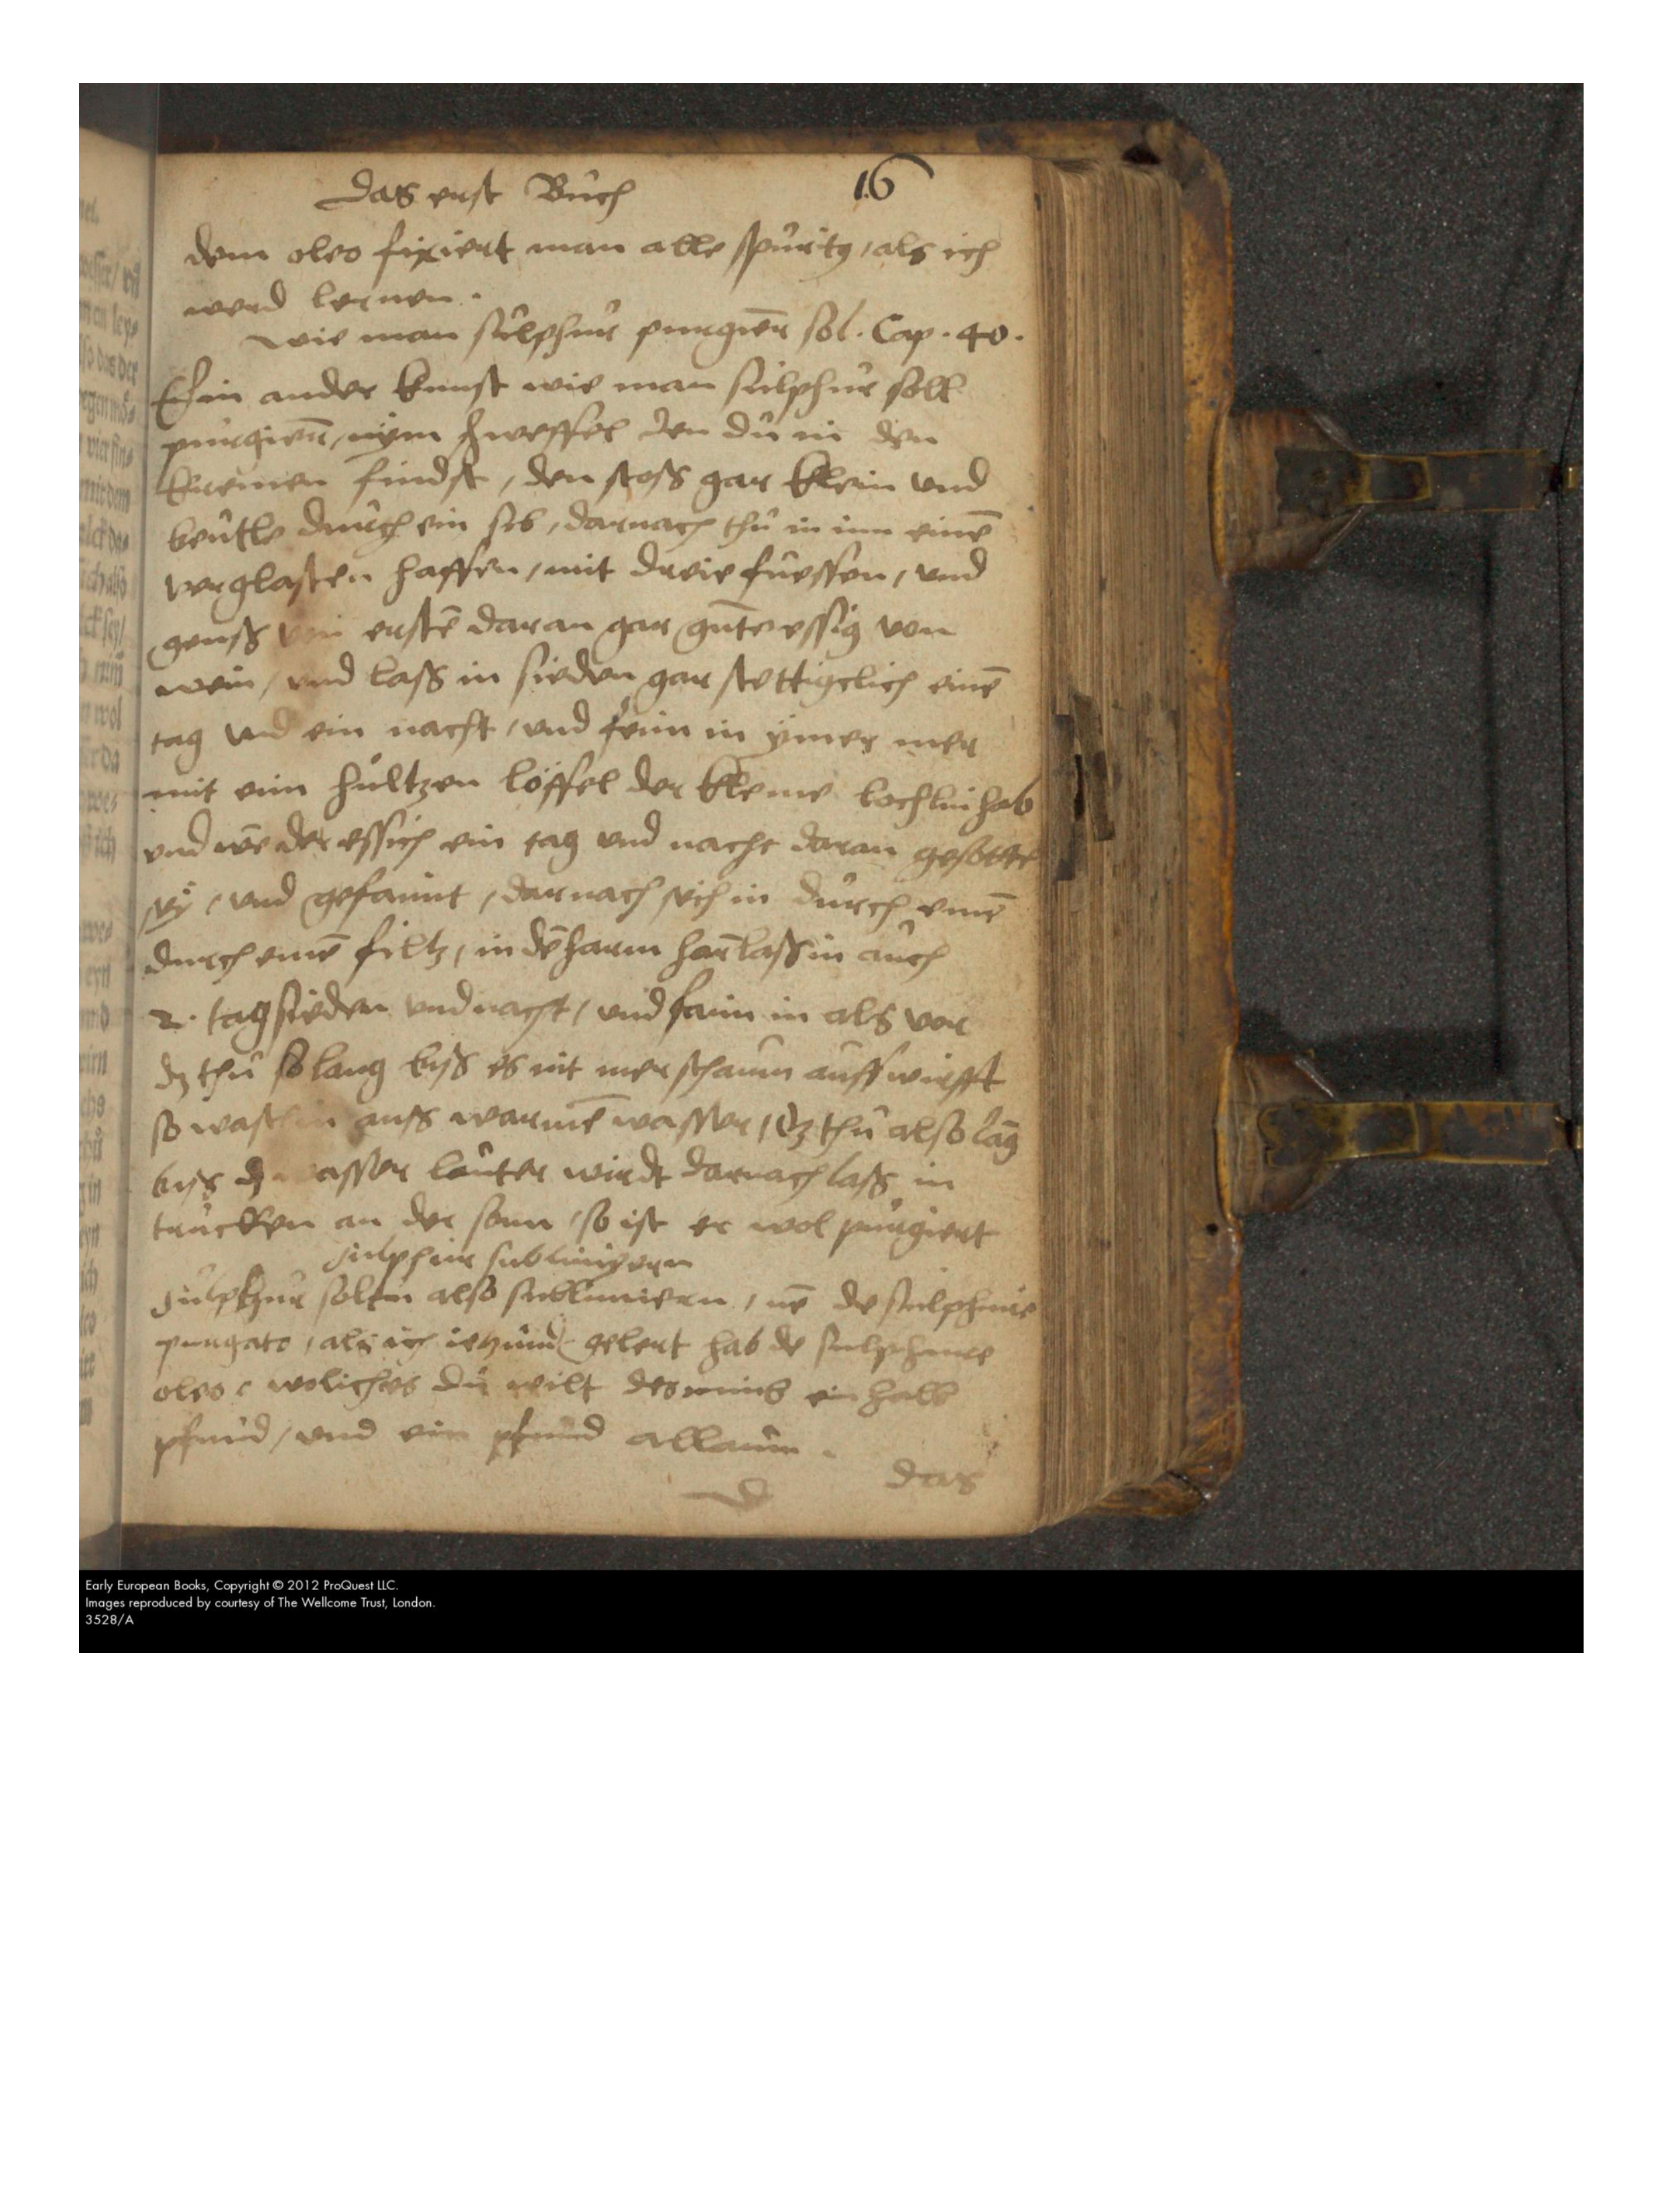 Das erst Buch 16
dem oleo fixiert man alle spirity, als ich
werd lernen.
wie man sulphur purgiern sol. Cap. 40.
Ein ander kunst wie man sulphur soll
purgiern, nym schweffel den du in den
kremen findst, den stoss gar klein und
beutle durch ein sib, darnach thu in inn einē
verglasten haffen, mit dreie fuessen, und
geuss von erstē daran gar gutē essig von
wein, und lass in sieden gar stettigclich einē
tag und ein nacht, und feim in ymer mer
mit eim hultzen löffel der kleine lochlin hab
und wē der essich ein tag und nacht daran gesottē
sy, und gefaimt, darnach sich in durch einē
durch einē filtz, in dē harm harn lass in auch
2. tag sieden und nacht, und faim in als vor
dz thu so lang biss es nit mer schaum auff wirfft
so wasch in auss warmē wasser, dz thu also lāg
biss dz wasser lauter wirdt darnach lass in
trucken an der sonn, so ist er wol purgiert
Sulphur sublimyern
Sulphur soltu also sublimiern, nē de sulphure
purgato, als ich ietzund gelert hab de sulphure
oleo welliches du wilt des nimb ein halb
pfund, und ein pfund allaum.
D das
Early European Books, Copyright © 2012 ProQuest LLC.
Images reproduced by courtesy of The Wellcome Trust, London.
3528/A